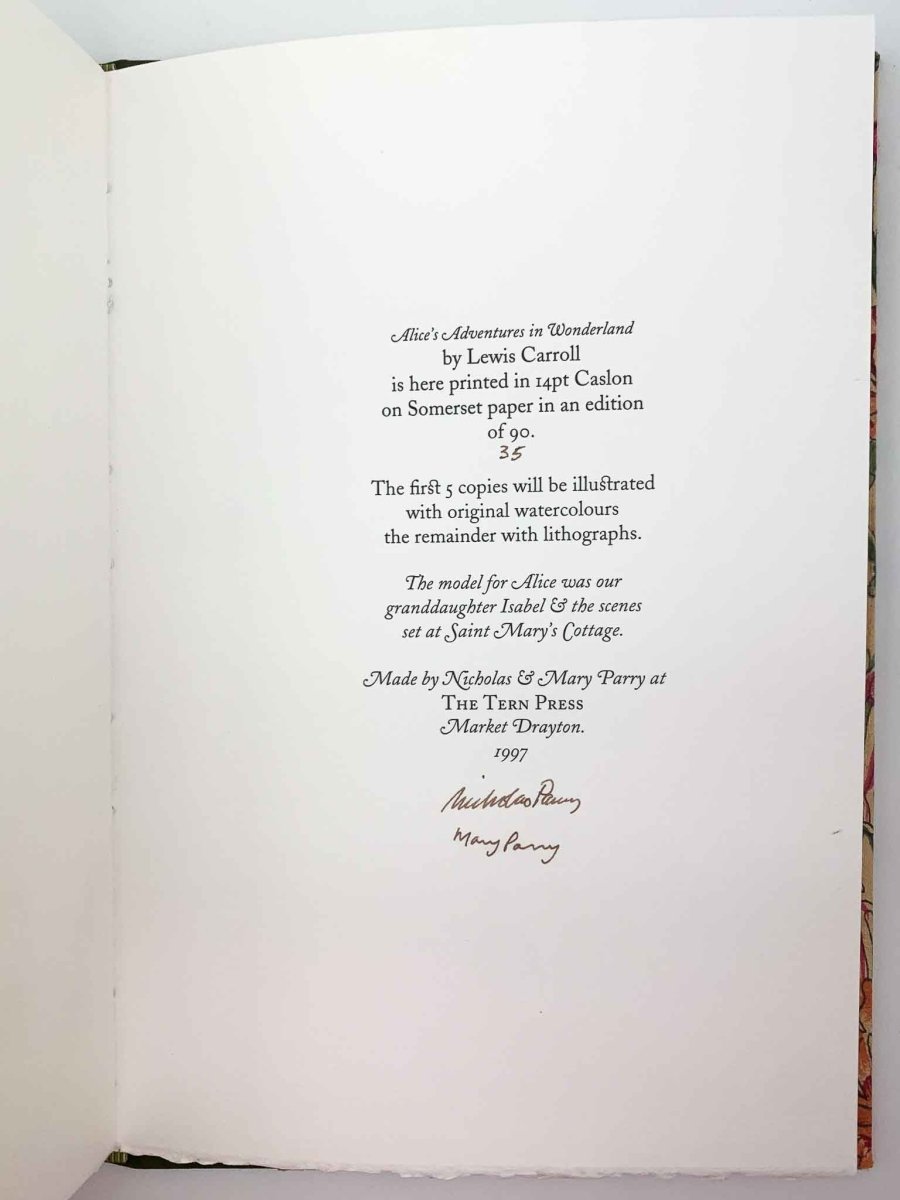 Alice's Adventures in Wonderland
by Lewis Carroll
is here printed in 14pt Caslon
on Somerset paper in an edition
of 90.
35
The first 5 copies will be illustrated
with original watercolours
the remainder with lithographs.
The model for Alice was our
granddaughter Isabel & the scenes
set at Saint Mary's Cottage.
Made by Nicholas & Mary Parry at
THE TERN PRESS
Market Drayton.
1997
Nicholas Parry
Mary Parry